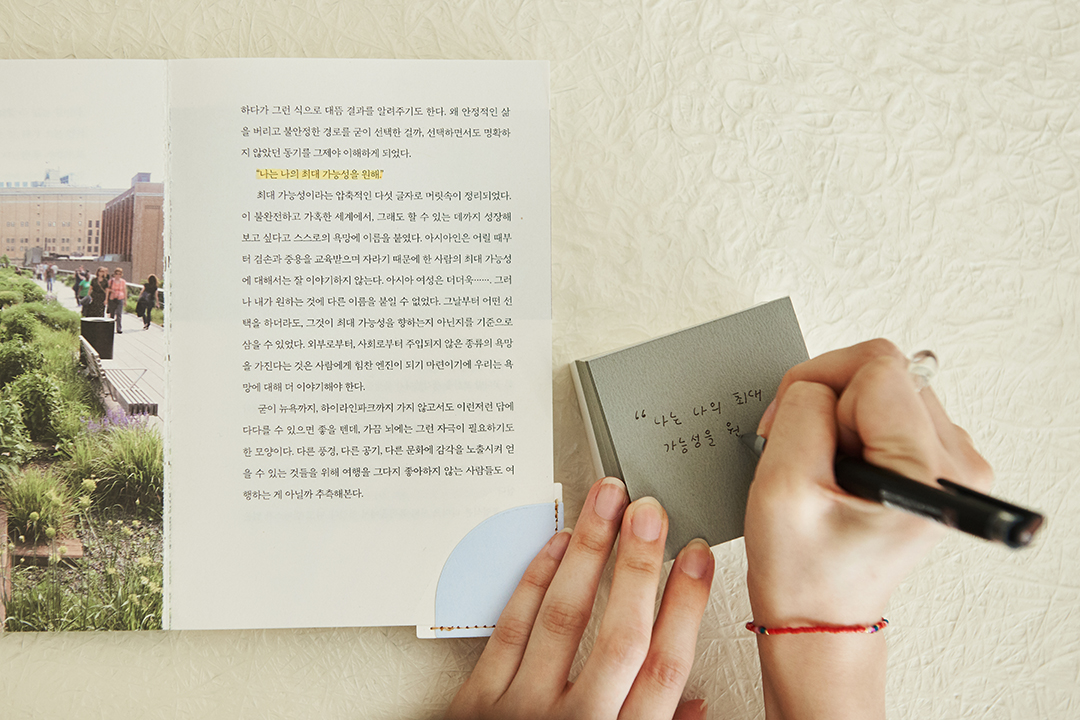 하다가 그런 식으로 대뜸 결과를 알려주기도 한다. 왜 안정적인 삶
을 버리고 불안정한 경로를 굳이 선택한 걸까, 선택하면서도 명확하
지 않았던 동기를 그제야 이해하게 되었다.
“나는 나의 최대 가능성을 원해.”
최대 가능성이라는 압축적인 다섯 글자로 머릿속이 정리되었다.
이 불완전하고 가혹한 세계에서, 그래도 할 수 있는 데까지 성장해
보고 싶다고 스스로의 욕망에 이름을 붙였다. 아시아인은 어릴 때부
터 겸손과 중용을 교육받으며 자라기 때문에 한 사람의 최대 가능성
에 대해서는 잘 이야기하지 않는다. 아시아 여성은 더더욱……. 그러
나 내가 원하는 것에 다른 이름을 붙일 수 없었다. 그날부터 어떤 선
택을 하더라도, 그것이 최대 가능성을 향하는지 아닌지를 기준으로
삼을 수 있었다. 외부로부터, 사회로부터 주입되지 않은 종류의 욕망
을 가진다는 것은 사람에게 힘찬 엔진이 되기 마련이기에 우리는 욕
망에 대해 더 이야기해야 한다.
굳이 뉴욕까지, 하이라인파크까지 가지 않고서도 이런저런 답에
다다를 수 있으면 좋을 텐데, 가끔 뇌에는 그런 자극이 필요하기도
한 모양이다. 다른 풍경, 다른 공기, 다른 문화에 감각을 노출시켜 얻
을 수 있는 것들을 위해 여행을 그다지 좋아하지 않는 사람들도 여
행하는 게 아닐까 추측해본다.
“나는 나의 최대
가능성을 원